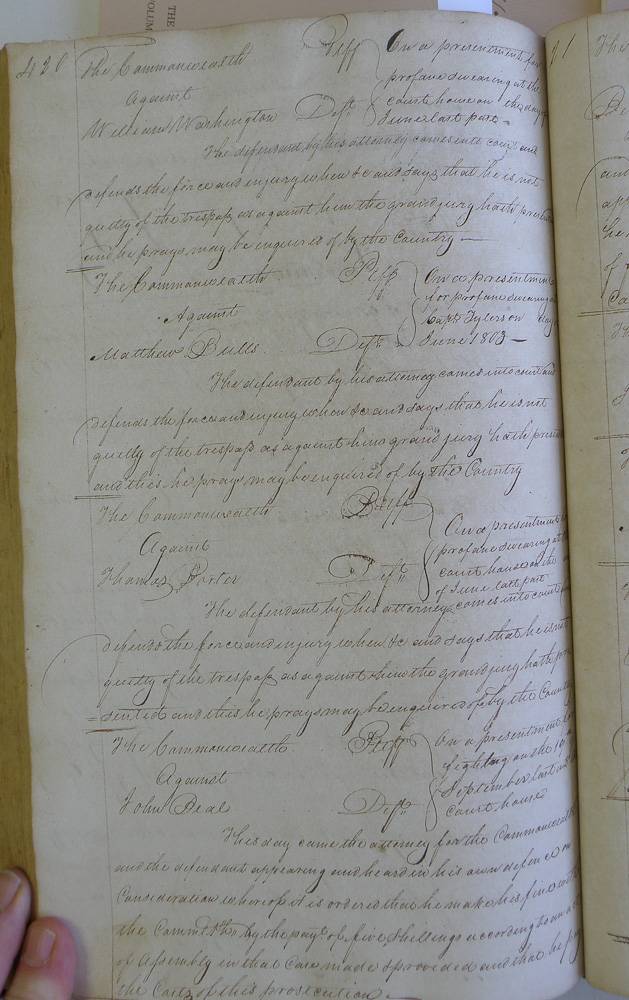 THE
VOLUM
430
The Commonwealth Plff
Against
William Washington Deft.
On a presentment for
profane swearing at the
court house on the day of
June last past =
The defendant by his attorney comes into court and
defends the force and injury when &c and says that he is not
guilty of the trespass as against him the grand jury hath
and he prays may be enquired of by the Country —
The Commonwealth Plff
Against
Matthew Bulls Deft.
On a presentment
for profane swearing
Capt. Tylers on day
June 1803 —
The defendant by his attorney comes into court and
defends the force and injury when &c and says that he is not
guilty of the trespass as against him grand jury hath
and this he prays may be enquired of by the Country
The Commonwealth Plff
Against
Thomas Porter Deft.
On a presentment
profane swearing at
court house on the
of June last past
The defendant by his attorney comes into court
defends the force and injury when &c and says that he is not
guilty of the trespass as against him the grand jury hath pre
= sented and this he prays may be enquired of by the
The Commonwealth Plff
Against
John Beal Deft.
On a presentment
fighting on the
September last
court house
This day came the attorney for the Commonwealth
and the defendant appearing and heard in his own defence on
Consideration whereof it is ordered that he make his fine with
the Commth. by the payt. of five shillings according to an
of Assembly in that Case made & provided and that he pay
the Costs of this prosecution.